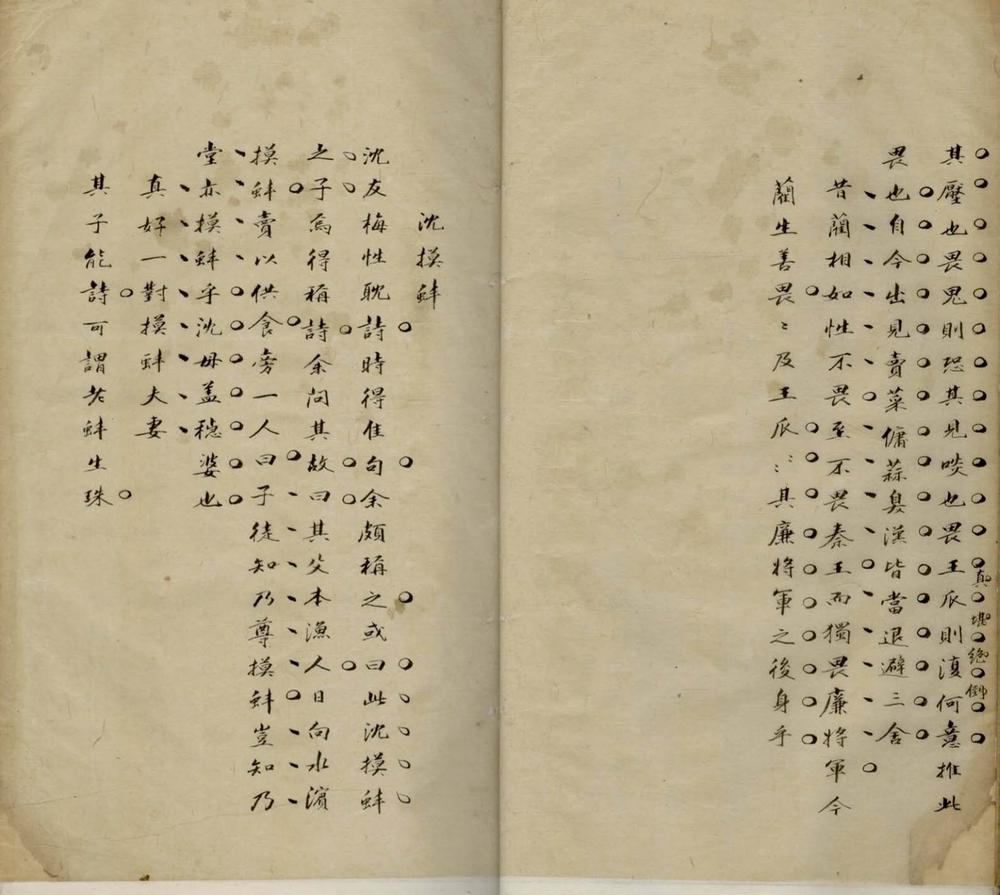 其壓也畏鬼則恐其見啖也畏王瓜則復何意推此
真堪絕倒
畏也自今出見賣菜傭蒜臭漢皆當退避三舍
昔藺相如性不畏虽不畏秦王而獨畏廉將軍今
藺生善畏〻及王瓜〻其廉將軍之後身乎
沈摸蚌
沈友梅性耽詩時得佳句余頗稱之或曰此沈摸蚌
之子烏得稱詩余問其故曰其父本漁人日向水濱
摸蚌賣以供食旁一人曰子徒知乃尊摸蚌豈知乃
堂亦摸蚌乎沈母盖穩婆也
真好一對摸蚌夫妻
其子能詩可謂老蚌生珠